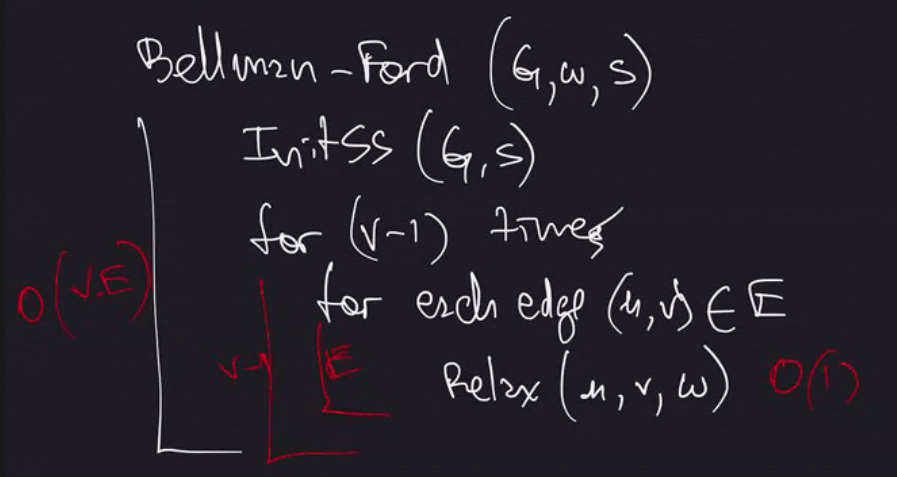 Bellman-Ford (G,w,s)
InitSS (G,s)
for (v-1) times
O(V.E)
for each edge (u,v) ∈ E
V-1
E
Relax (u,v,w) O(1)